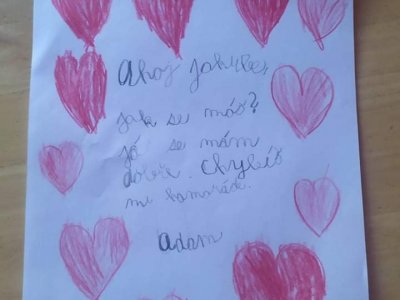 Ahoj Jakube,
jak se máš?
já se mám
dobře. Chybíš
mi kamaráde.
Adam